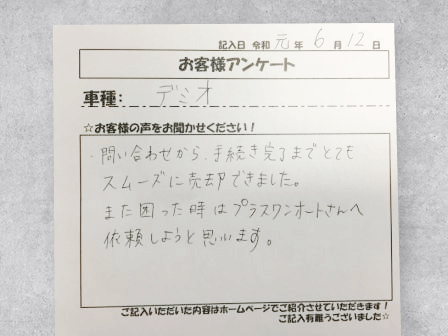 記入日 令和 元 年 6 月 12 日
お客様アンケート
車種: デミオ
☆お客様の声をお聞かせください!
・問い合わせから、手続き完了までとても
スムーズに売却できました。
また困った時はプラスワンオートさんへ
依頼しようと思います。
ご記入いただいた内容はホームページでご紹介させていただきます!
ご記入有難うございました☆